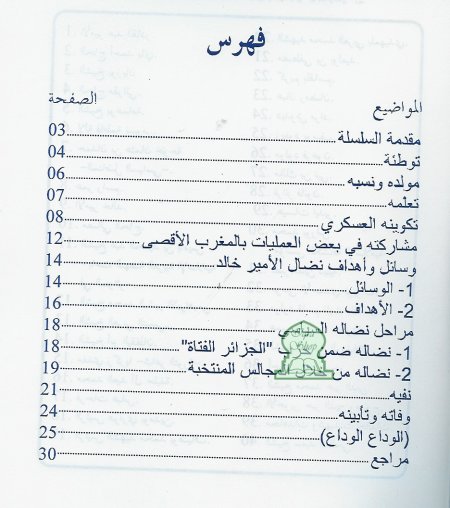 فهرس
المواضيع الصفحة
مقدمة السلسلة 03
توطئة 04
مولده ونسبه 06
تعلمه 07
تكوينه العسكري 08
مشاركته في بعض العمليات بالمغرب الأقصى 12
وسائل وأهداف نضال الأمير خالد 14
1- الوسائل 14
2- الأهداف 16
مراحل نضاله 18
1- نضاله ضمن "الجزائر الفتاة" 18
2- نضاله من المجالس المنتخبة 19
نفيه 21
وفاته وتأبينه 24
(الوداع الوداع) 25
مراجع 30